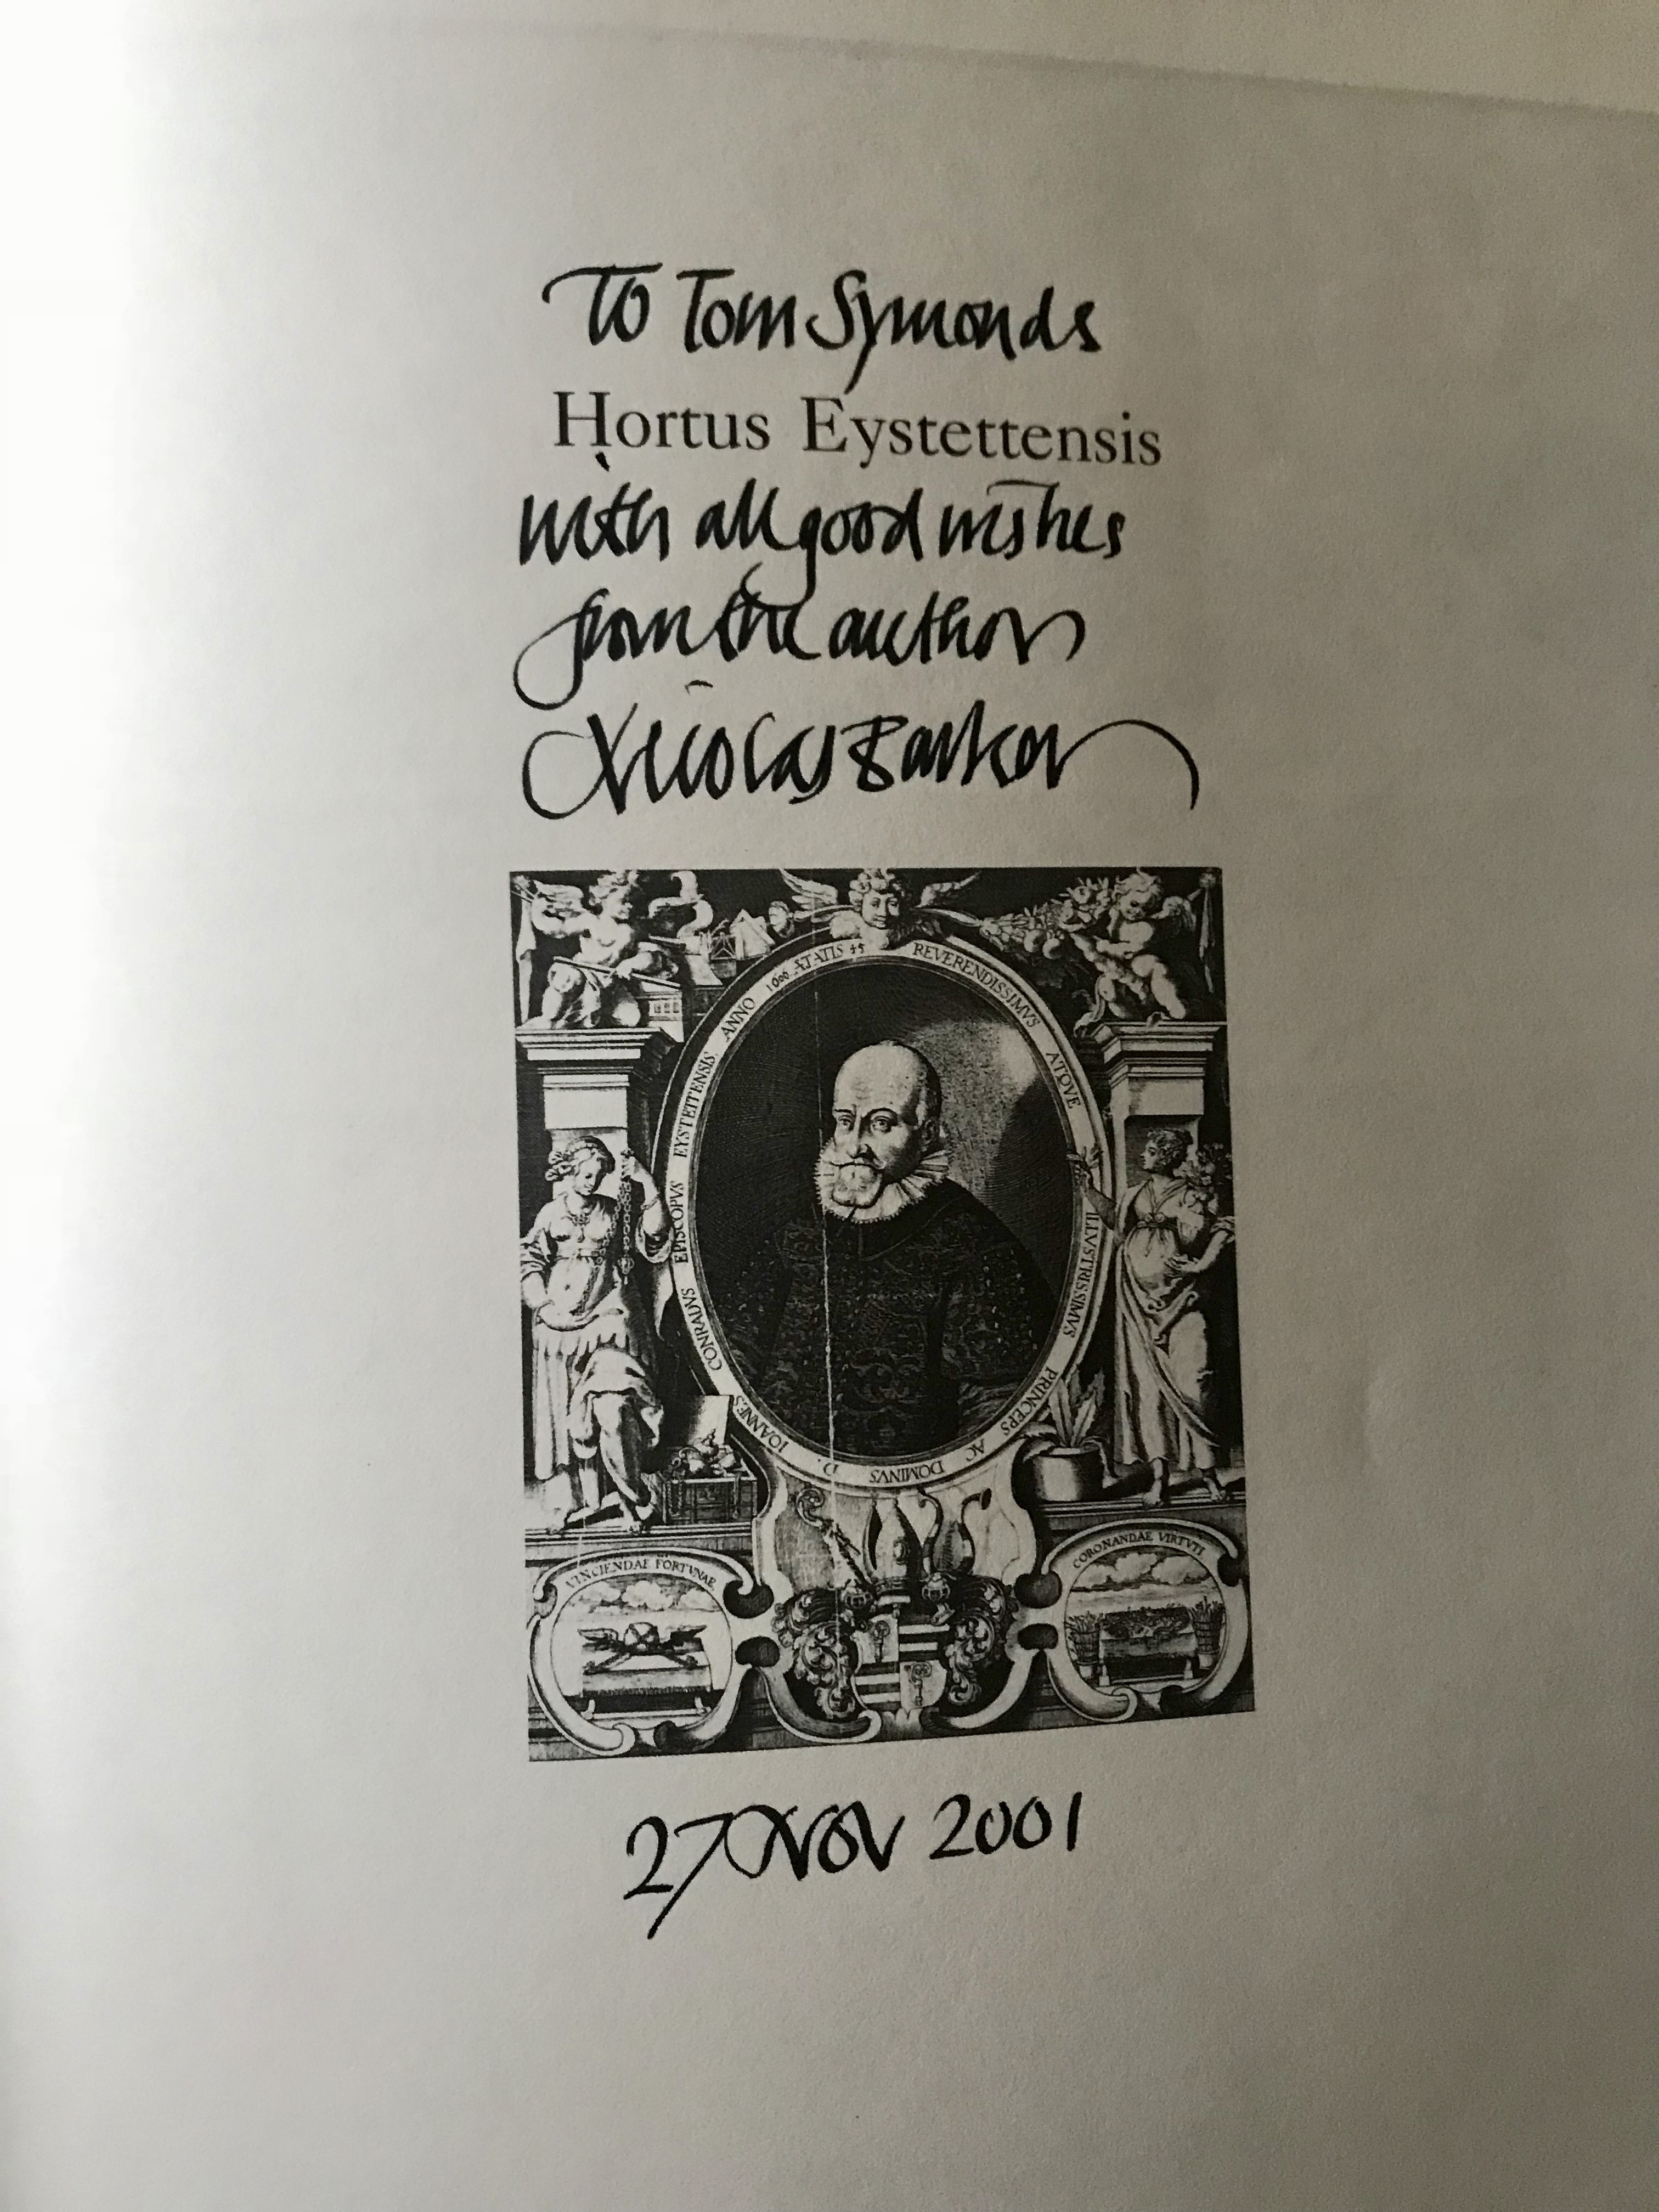 To Tom Symonds
Hortus Eystettensis
with all good wishes
from the author
Nicolas Barker
REVERENDISSIMVS ATQVE ILLVSTRISSIMVS PRINCEPS AC DOMINVS D. IOANNES CONRADVS EPISCOPVS EYSTETTENSIS. ANNO 1606 ÆTATIS 45
VINCIENDAE FORTVNAE
CORONANDAE VIRTVTI
27 Nov 2001